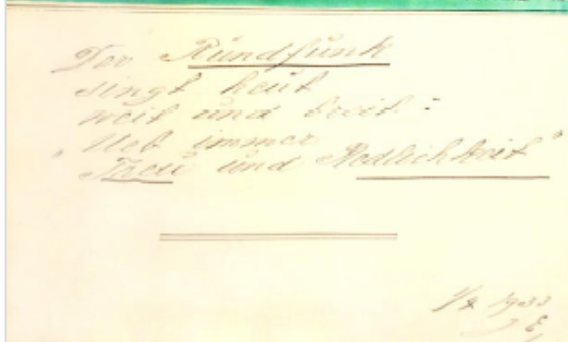 Der Rundfunk
singt heut
weit und breit:
"Ueb immer
Treu und Redlichkeit"
1933